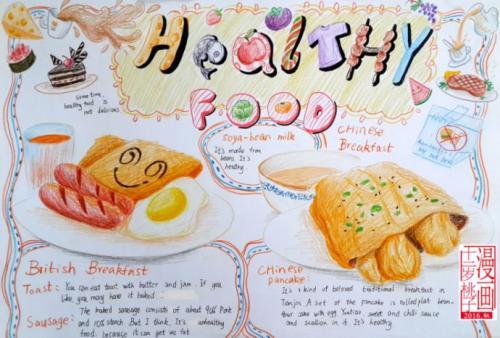 HeaLTHY
FOOD
some time,
healthy food is
not delicious.
soya-bean milk
It's made from
beans. It's
healthy.
Chinese
Breakfast
British Breakfast
Toast: You can eat toast with butter and jam. If you
like, you may have it baked.
Sausage: The baked sausage consists of about 90% Pork
and 10% starch. But I think, It's unhealthy
food, because it can get me fat
Chinese
pancake:
It's a kind of beloved traditional breakfast in
Tianjin. A set of the pancake is rolled plat bean-
flour cake with egg, Youtiao, sweet and chili sauce
and scallion in it. It's healthy
漫画
十岁桃子
2016.秋